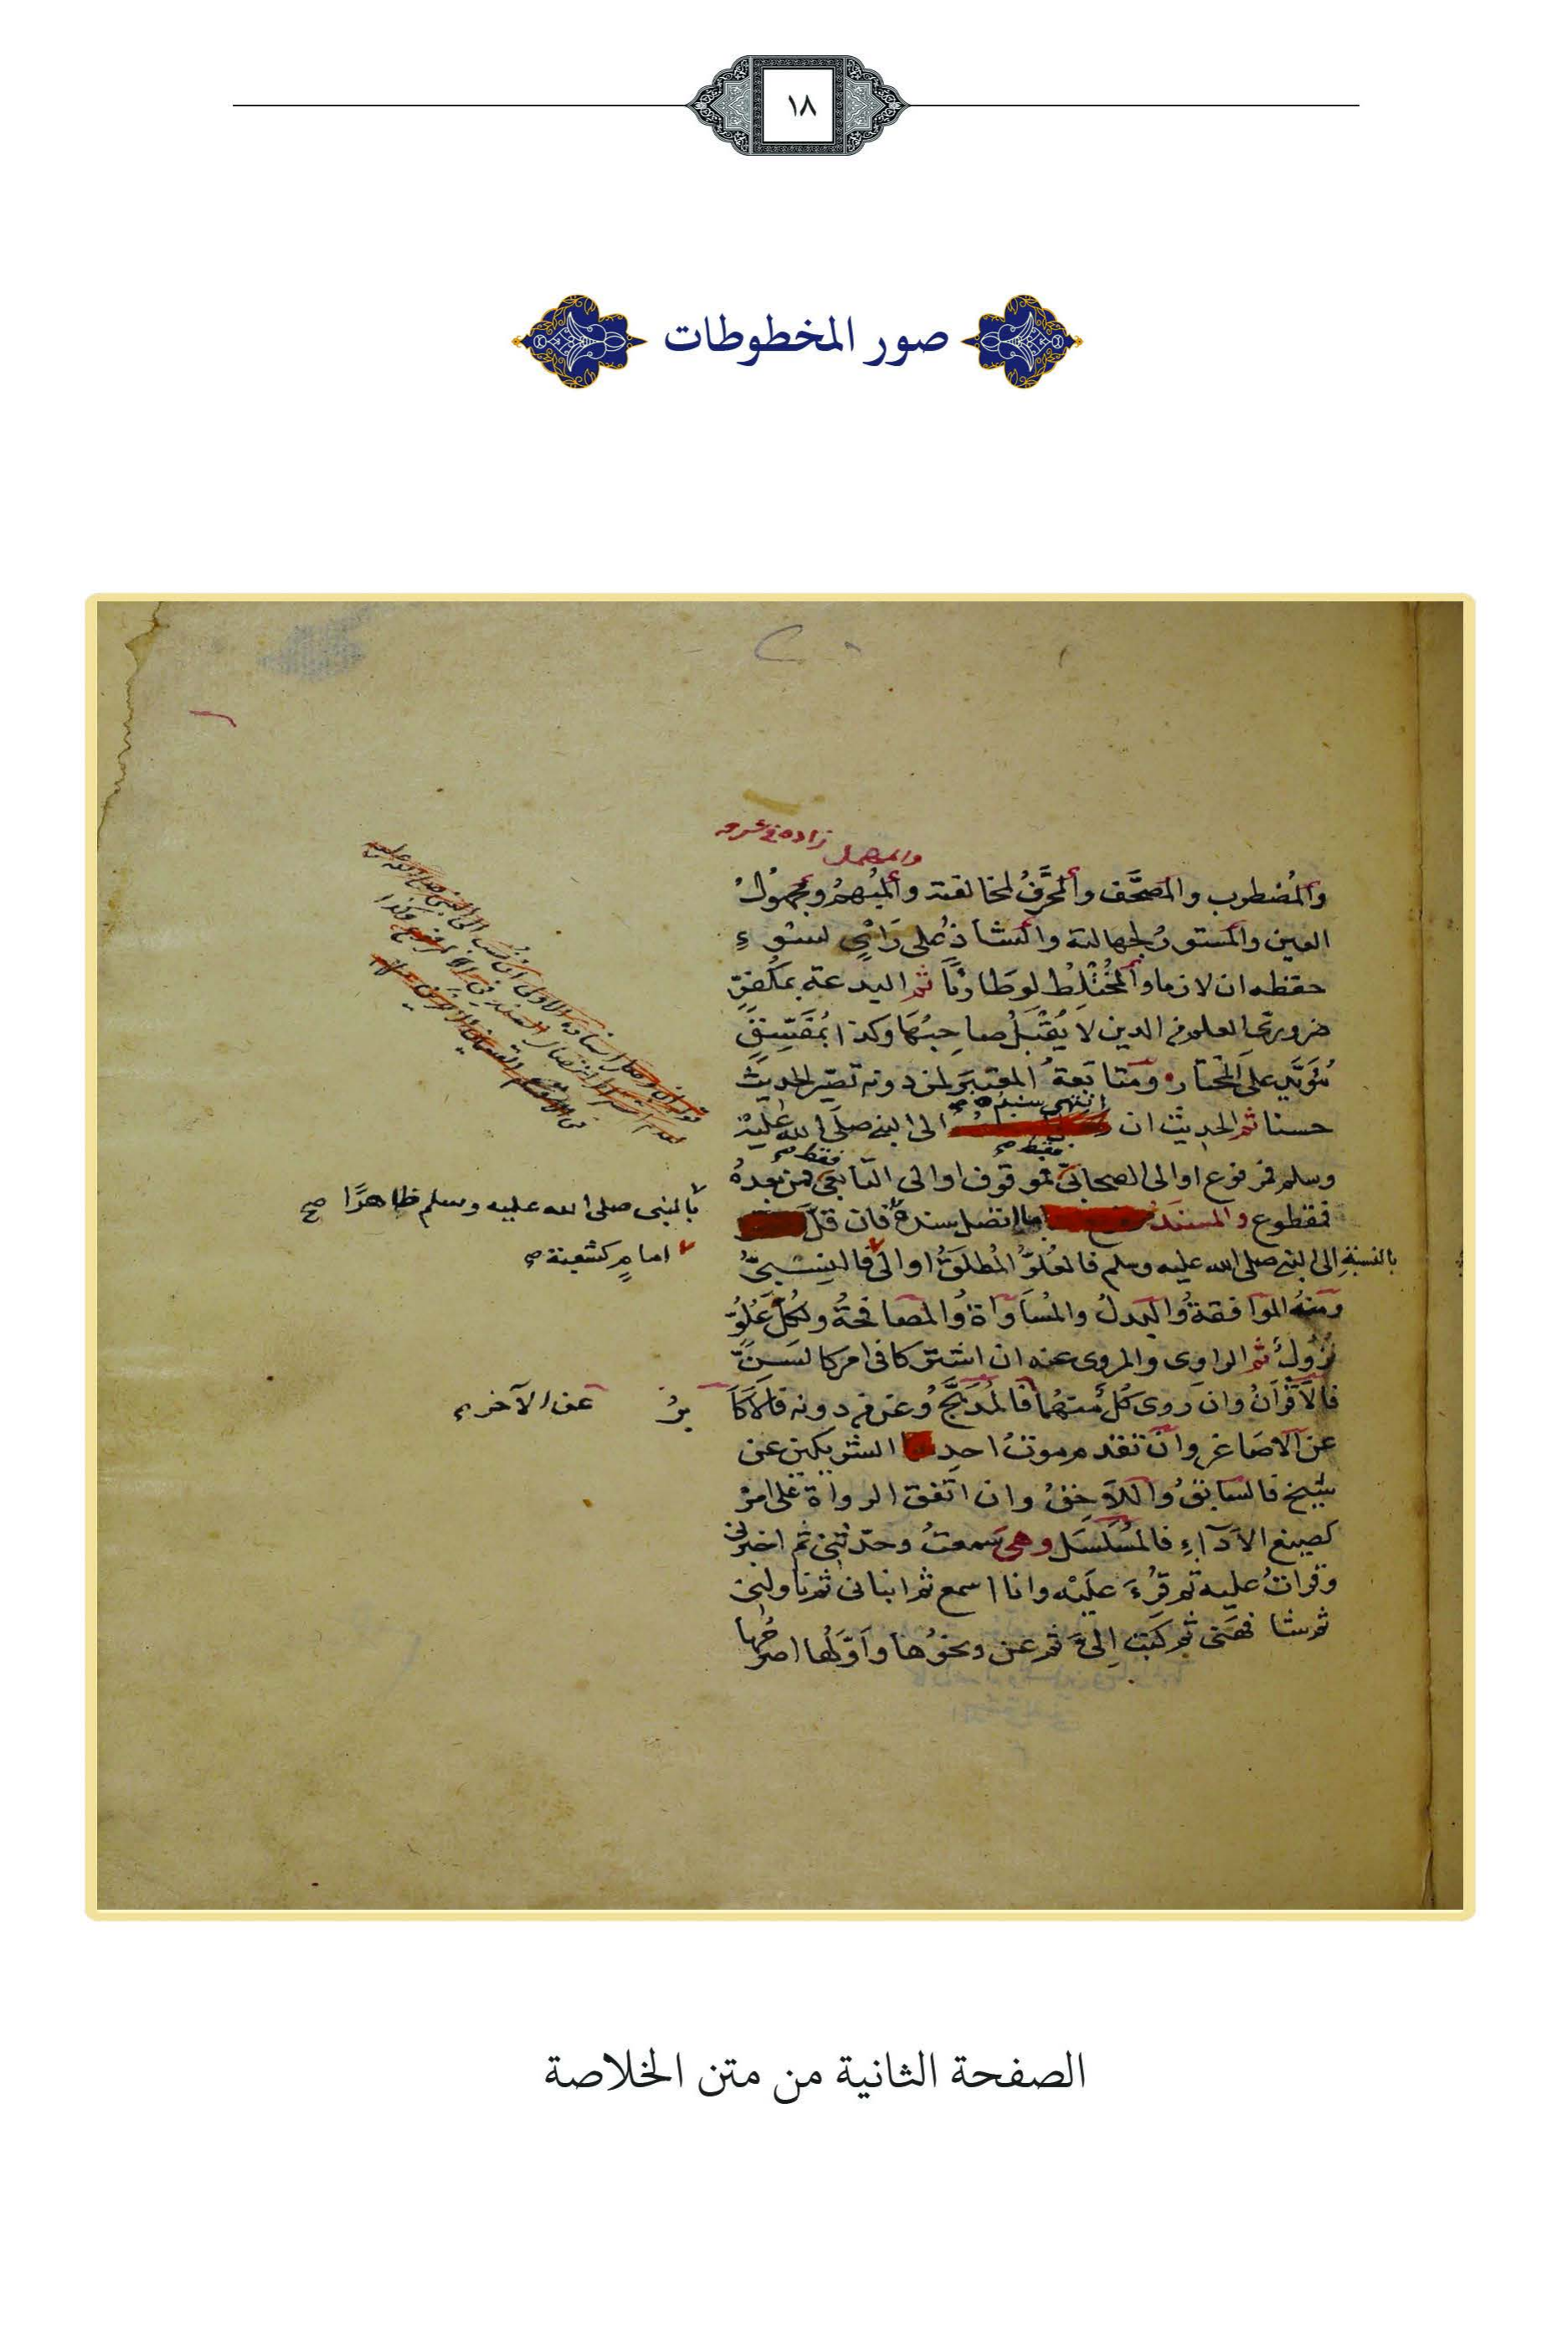 ١٨
صور المخطوطات
والمهمل زاده في شرحه
والمُضطرِب والمصَحَّف والمحَرَّفُ لمخالفته والمُبْهمُ ومجهُولُ
العين والمستورُ لجهالته والشاذُّ على رَأْيٍ لسُوءِ
حفظه ان لازما والمُخْتَلِطُ لو طارئًا ثم البدعة بمكَفِّرٍ
ضروريّ العلم في الدين لا يُقْبَلُ صاحِبُهَا وكذا بمُفَسِّقٍ
مُؤَيِّدٍ على المختار ومتابَعةُ المعتبَر لمن دونه تصيّر الحديثَ
حسنا ثم الحديث ان انتهى سنده الى النبي صلى الله عليه
فقط صح فقط صح
وسلم فمرفوع او الى الصحابيّ فموقوف او الى التابعيّ فمن بعدهُ
بالنبي صلى الله عليه وسلم ظاهرًا صح
فمقطوع والمسنَدُ ما اتصل سنده فان قلّ
امامٍ كشعبة صح
بالنسبةِ الى النبي صلى الله عليه وسلم فالعُلوُّ المُطلَقُ او الى فالنِسْبيُّ
ومنهُ الموافقةُ والبدلُ والمُسَاوَاةُ والمصافحةُ ولكُلِّ عُلُوٍّ
نزولٌ ثم الراوى والمروى عنه ان اشتركا فى امر كالسِنِّ
فالأقْرَانُ وان رَوى كُلٌّ منهُما فالمُدَبَّجُ وعن من دونه فالأكَا بِرُ
عن الآخر
عن الاصَاغر وان تقدم موتُ احد الشريكين عن
شيخ فالسابقُ واللاحِقُ وان اتفق الرواة على امرٍ
كصيغ الأدآءِ فالمُسَلْسَل وهي سمعتُ وحدّثنى ثم اخبرنى
وقراتُ عليه ثم قُرِءَ علَيْه وانا اسمع ثم انبانى ثم ناولنى
ثم شا فهنى ثم كتب إِلىَّ ثم عن ونحوُها وأوّلُها اصرحُها
الصفحة الثانية من متن الخلاصة